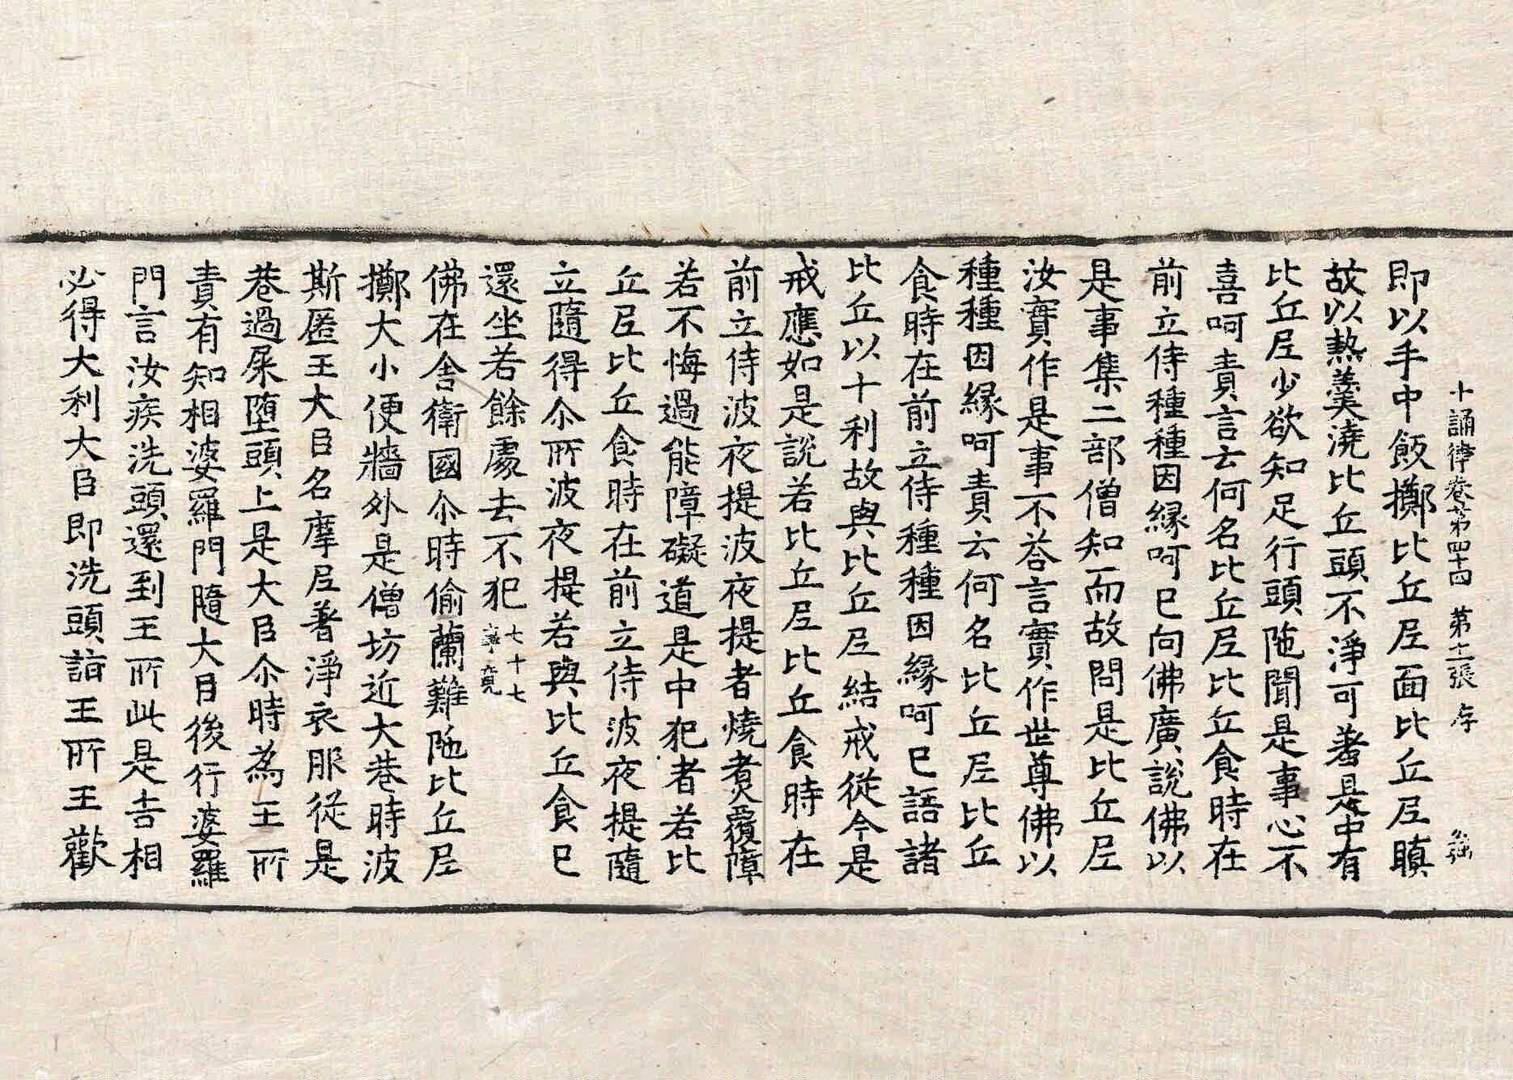 十誦律卷第四十四 第十一張 存
即以手中飯擲比丘𡰱面比丘𡰱瞋
故以熱羹澆比丘頭不淨可羞是中有
比丘𡰱少欲知足行頭陁聞是事心不
喜呵責言云何名比丘𡰱比丘食時在
前立侍種種因緣呵已向佛廣說佛以
是事集二部僧知而故問是比丘𡰱
汝實作是事不荅言實作世尊佛以
種種因緣呵責云何名比丘𡰱比丘
食時在前立侍種種因緣呵已語諸
比丘以十利故與比丘𡰱結戒從今是
戒應如是說若比丘𡰱比丘食時在
前立侍波夜提波夜提者燒煮覆障
若不悔過能障礙道是中犯者若比
丘𡰱比丘食時在前立侍波夜提隨
立隨得尒所波夜提若與比丘食已
還坐若餘處去不犯 七十七 竟
佛在舍衛國尒時偷蘭難陁比丘𡰱
擲大小便牆外是僧坊近大巷時波
斯匿王大臣名摩𡰱著淨衣服從是
巷過屎墮頭上是大臣尒時為王所
責有知相婆羅門隨大臣後行婆羅
門言汝疾洗頭還到王所此是吉相
必得大利大臣即洗頭詣王所王歡